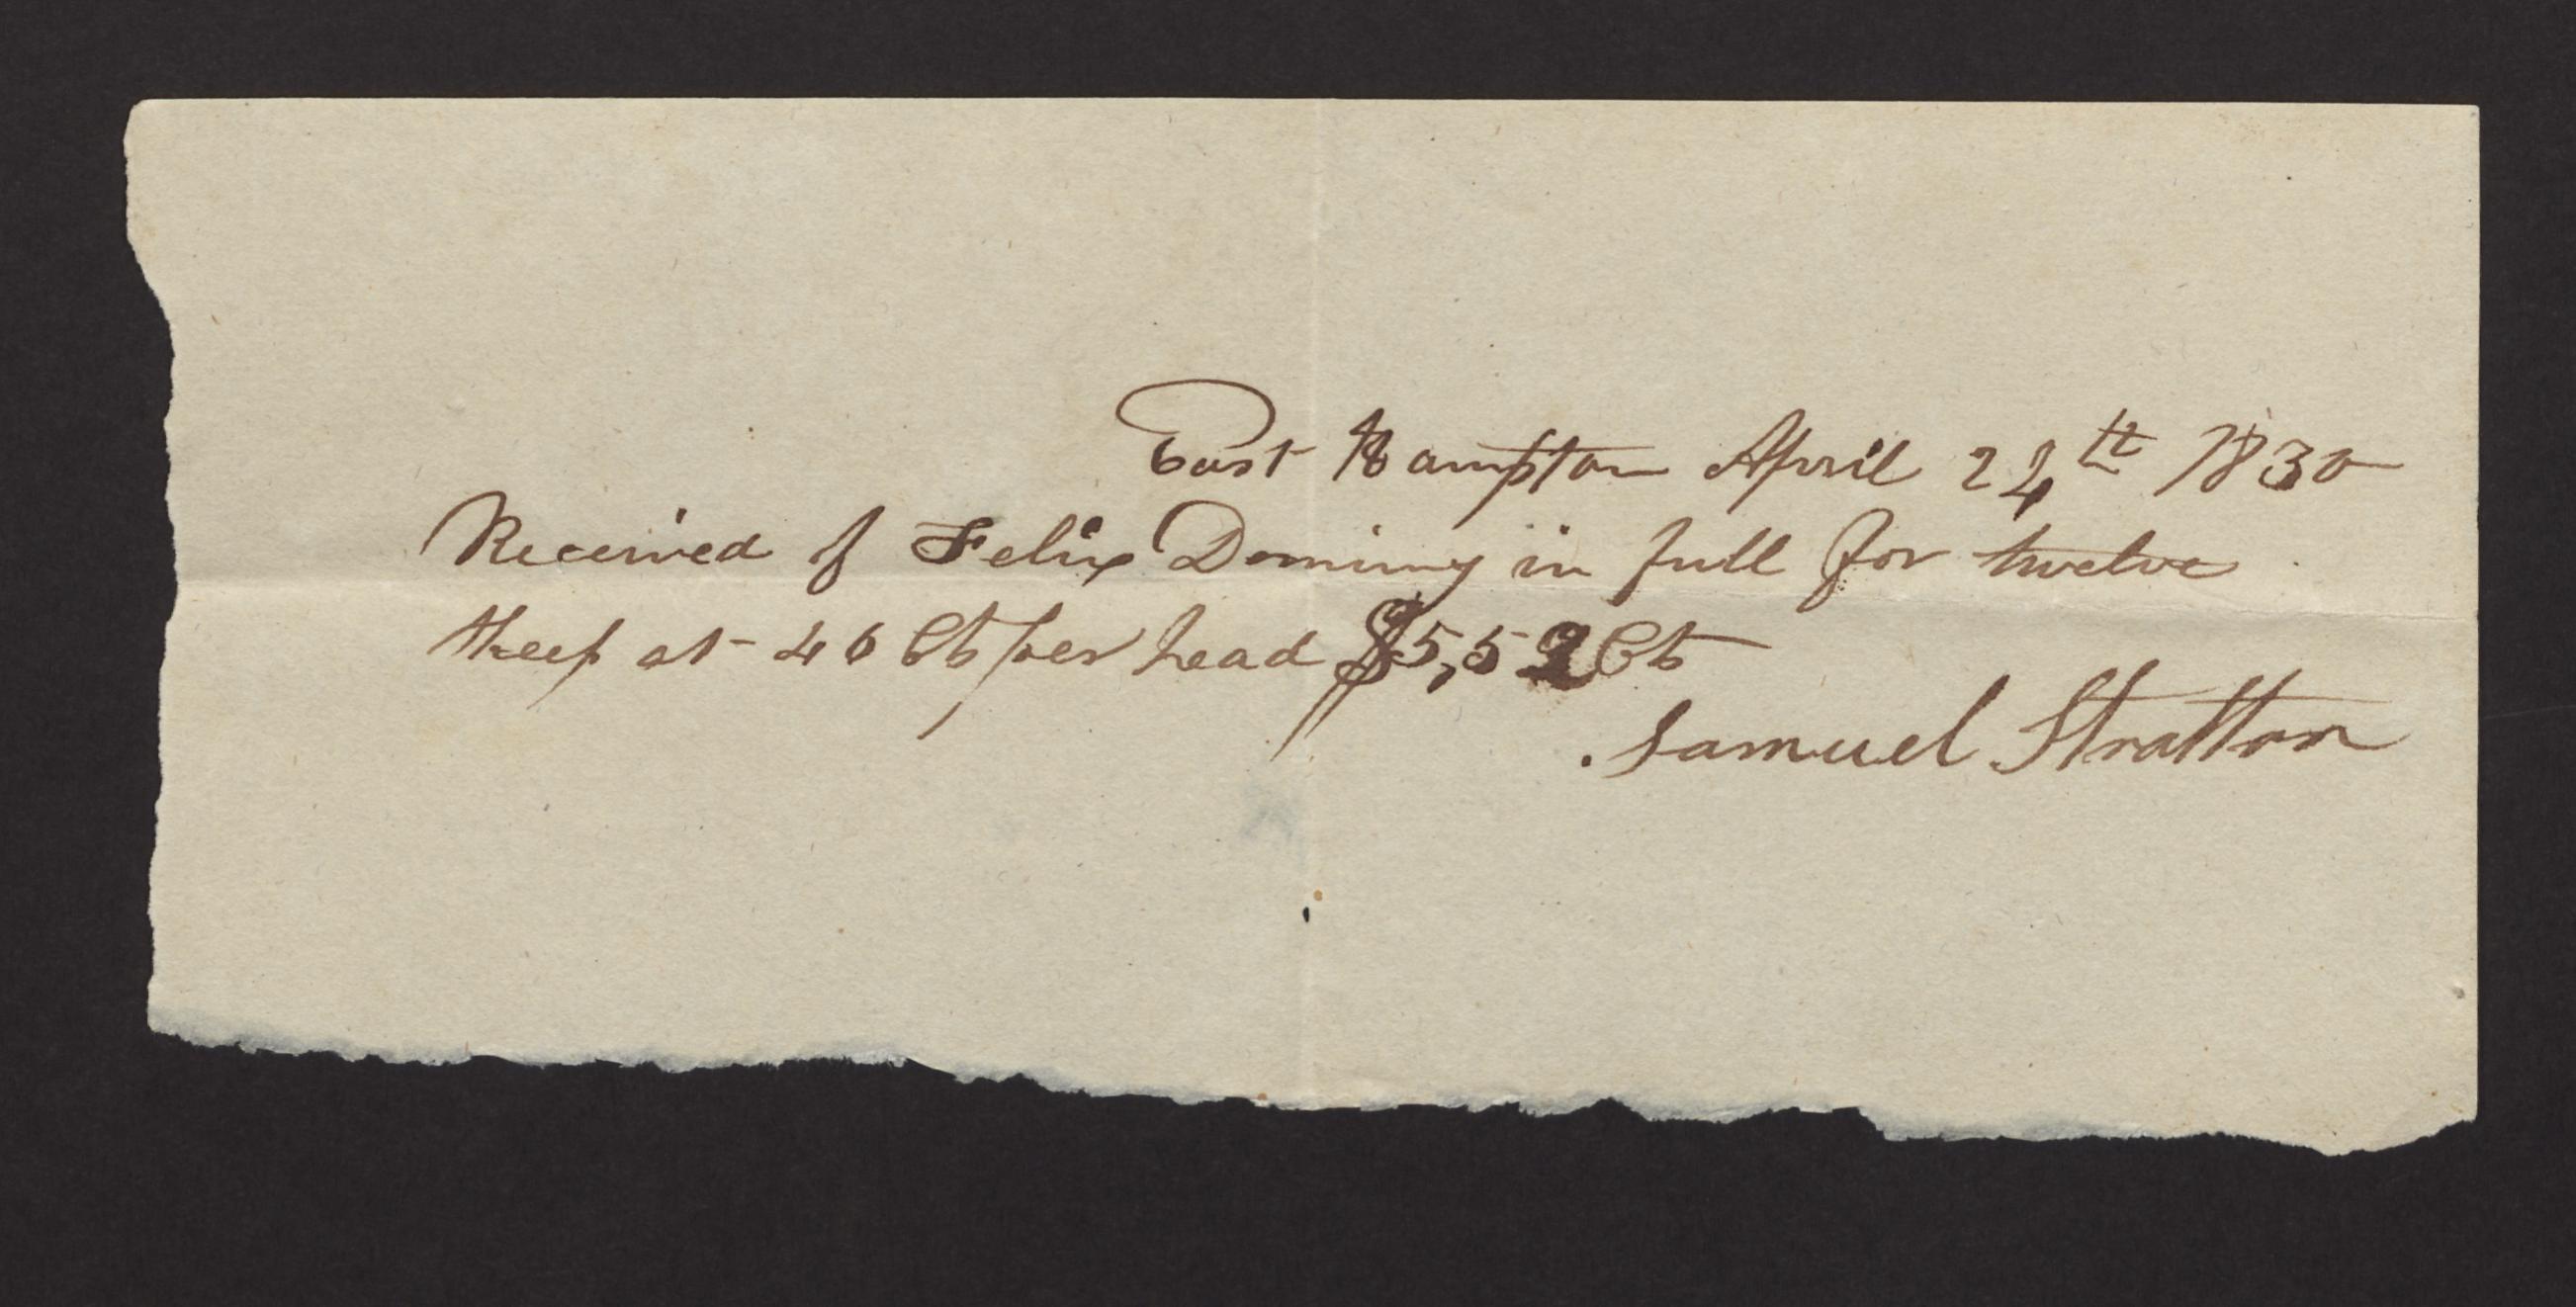 East Hampton April 24th 1830
Received of Felix Dominy in full for twelve
Sheep at 46 Ct per head $5,52 Ct
Samuel Stratton